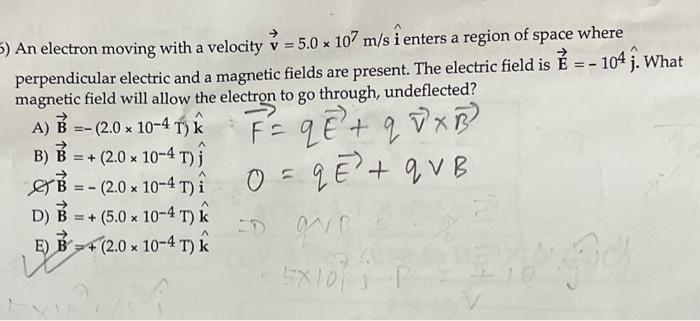 5) An electron moving with a velocity v⃗ = 5.0 × 10⁷ m/s î enters a region of space where
perpendicular electric and a magnetic fields are present. The electric field is E⃗ = – 10⁴ ĵ. What
magnetic field will allow the electron to go through, undeflected?
A) B⃗ = – (2.0 × 10⁻⁴ T) k̂
F⃗ = qE⃗ + q v⃗ × B⃗
B) B⃗ = + (2.0 × 10⁻⁴ T) ĵ
B⃗ = – (2.0 × 10⁻⁴ T) î
0 = qE⃗ + qvB
D) B⃗ = + (5.0 × 10⁻⁴ T) k̂
E) B⃗ = + (2.0 × 10⁻⁴ T) k̂